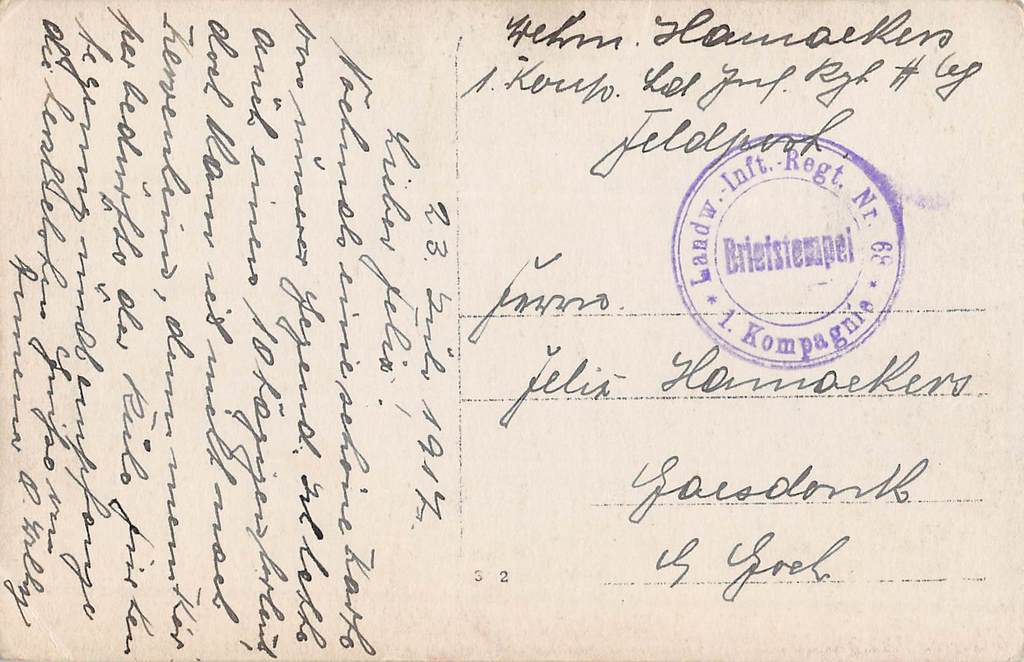 Wehrm. Hamaekers
1. Komp. Ld. Inf. Rgt # 68
Feldpost.
Landw.-Inft.-Regt. Nr. 68
Briefstempel
* 1. Kompagnie *
Herrn
Felix Hamaekers
Gaesdonk
b/ Goch
32
23. Juli 1917.
Lieber Felix!
Nochmals eine schöne Karte
von unserer Gegend. Ich hatte
auch einen 10 tägigen
doch kam ich nicht nach
denn mein Kör
per bedurfte der Ruhe für
und empfange
die herzlichsten